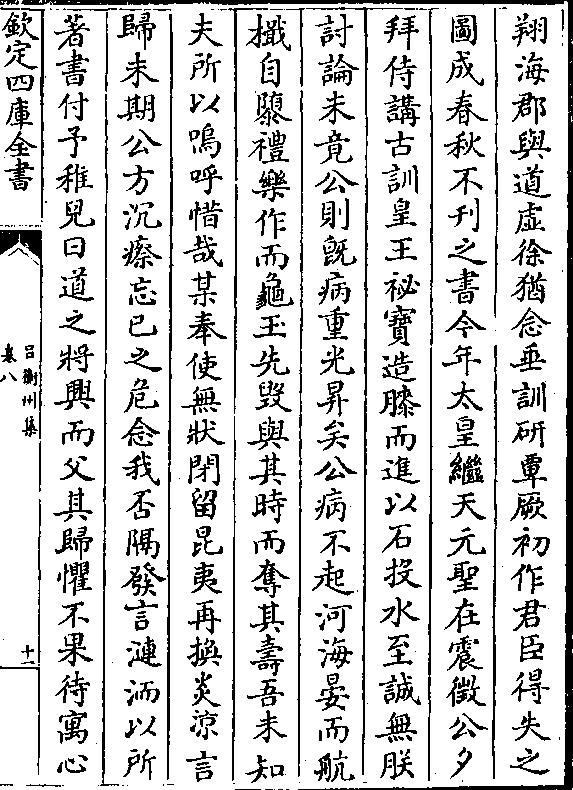 翔海郡與道虛徐猶念垂訓研覃厥初作君臣得失之
圖成春秋不刊之書今年太皇繼天元聖在震徵公夕
拜侍講古訓皇王祕寶造膝而進以石投水至誠無朕
討論未竟公則旣病重光昇矣公病不起河海晏而航
擑自隳禮樂作而龜玉先毀與其時而奪其壽吾未知
夫所以嗚呼惜哉某奉使無狀閉留昆夷再換炎涼言
歸未期公方沉瘵忘已之危念我否隔發言漣洏以所
著書付予稚兒曰道之將興而父其歸懼不果待寓心
欽定四庫全書
吕衡州集
卷八
十一